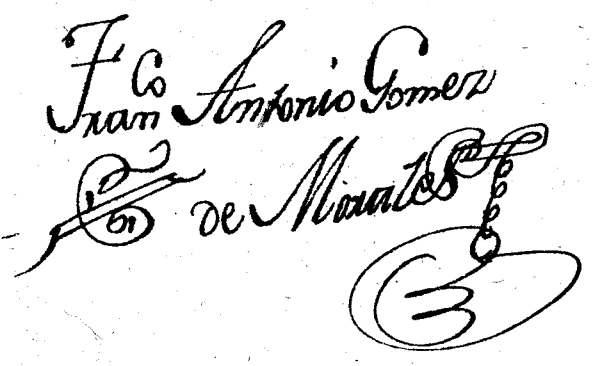 Fran.co Antonio Gomez
de Morales